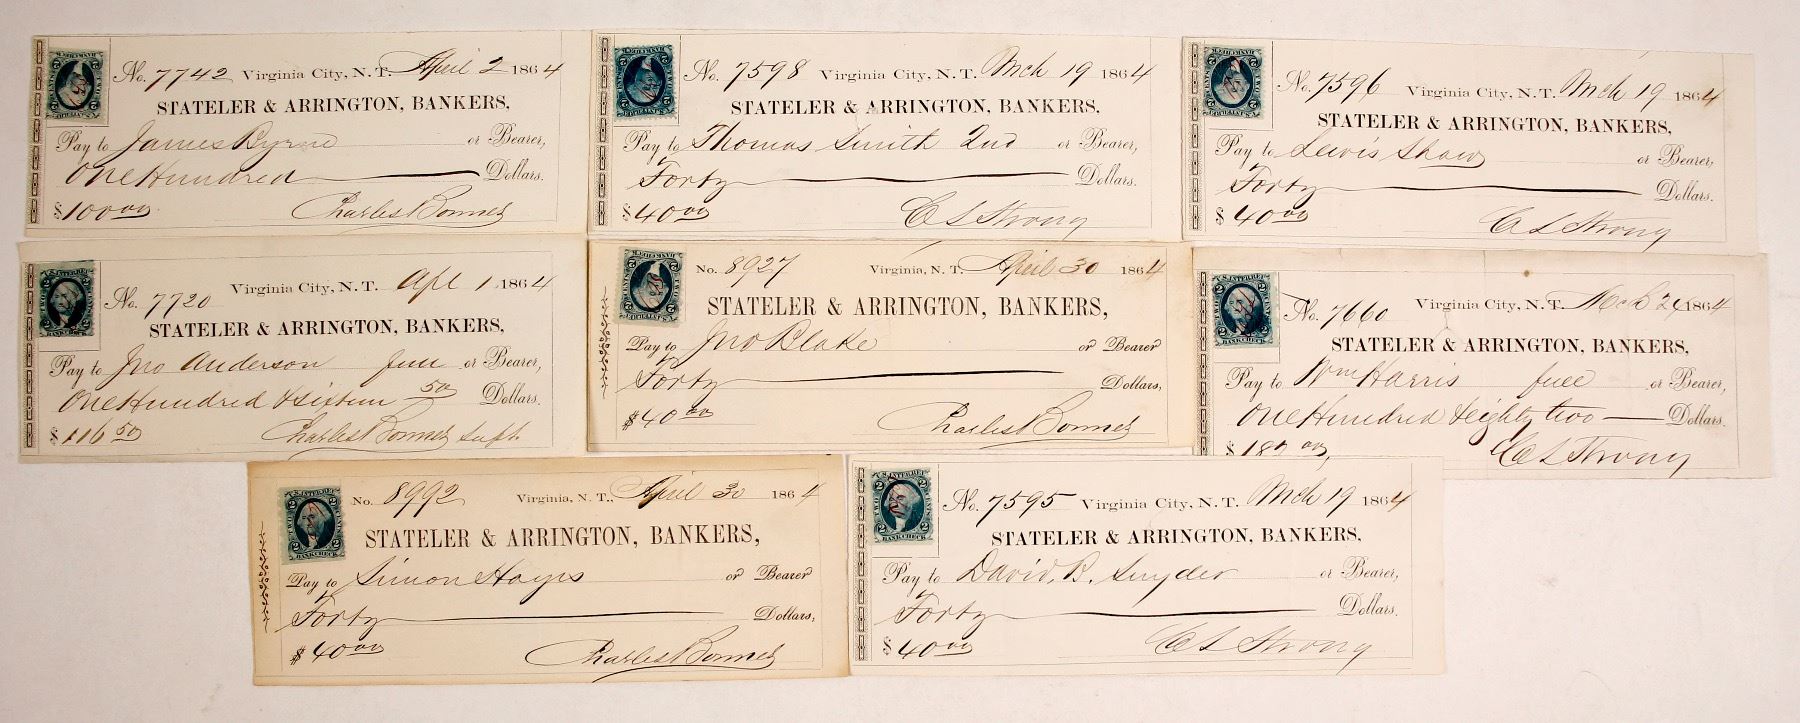 No. 7742 Virginia City, N. T. April 2 1864
STATELER & ARRINGTON, BANKERS,
Pay to James Byrne or Bearer,
One Hundred Dollars.
$ 100 00
Charles Bonner
No. 7598 Virginia City, N. T. Mch 19 1864
STATELER & ARRINGTON, BANKERS,
Pay to Thomas Smith 2nd or Bearer,
Forty Dollars.
$ 40 00
C L Strong
No. 7596 Virginia City, N. T. Mch 19 1864
STATELER & ARRINGTON, BANKERS,
Pay to Lewis Shaw or Bearer,
Forty Dollars.
$ 40 00
C L Strong
No. 7720 Virginia City, N. T. Apl 1 1864
STATELER & ARRINGTON, BANKERS,
Pay to Jno Anderson or Bearer,
One Hundred & Sixteen 50 Dollars.
$ 116 50
Charles Bonner Supt.
No. 8927 Virginia, N. T. April 30 1864
STATELER & ARRINGTON, BANKERS,
Pay to Jno Blake or Bearer
Forty Dollars,
$ 40 00
Charles Bonner
No. 7660 Virginia City, N. T. Mch 1864
STATELER & ARRINGTON, BANKERS,
Pay to Wm Harris or Bearer,
One Hundred & eighty two Dollars.
$ 182 00
C L Strong
U.S. INTER. REV.
TWO CENTS
BANK CHECK
No. 8992 Virginia, N. T., April 30 1864
STATELER & ARRINGTON, BANKERS,
Pay to Simon Hayes or Bearer
Forty Dollars,
$ 40 00
Charles Bonner
U.S. INTER. REV.
TWO CENTS
BANK CHECK
No. 7595 Virginia City, N. T. Mch 19 1864
STATELER & ARRINGTON, BANKERS,
Pay to David B. Snyder or Bearer,
Forty Dollars.
$ 40 00
C L Strong